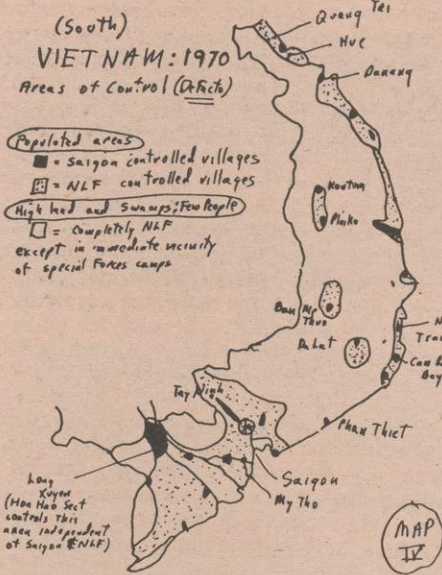 (South)
VIETNAM: 1970
Areas of Control (Defacto)
Populated areas
= Saigon controlled villages
= NLF controlled villages
High land and Swamps; Few People
= Completely NLF
except in immediate vicinity
of special Forces camps
Quang Tri
Hue
Danang
Kontum
Pleiko
Ban Me
Thuo
Da Lat
N
Tra
Cam R
Bay
Phan Thiet
Tay Ninh
Saigon
My Tho
Long
Xuyen
(Hoa Hao Sect
controls This
area independent
of Saigon & NLF)
MAP
IV